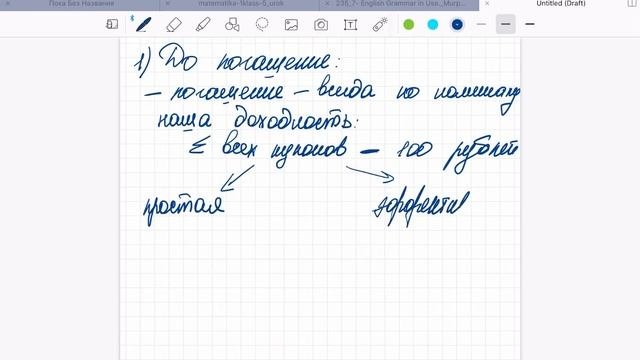 Пока Без Названия
matematika-1klass-5_urok
235_7- English Grammar in Use._Murp...
Untitled (Draft)
1) До погашение:
– погашение – всегда по номиналу
наша доходность:
Σ всех купонов – 100 рублей
простая эффектив